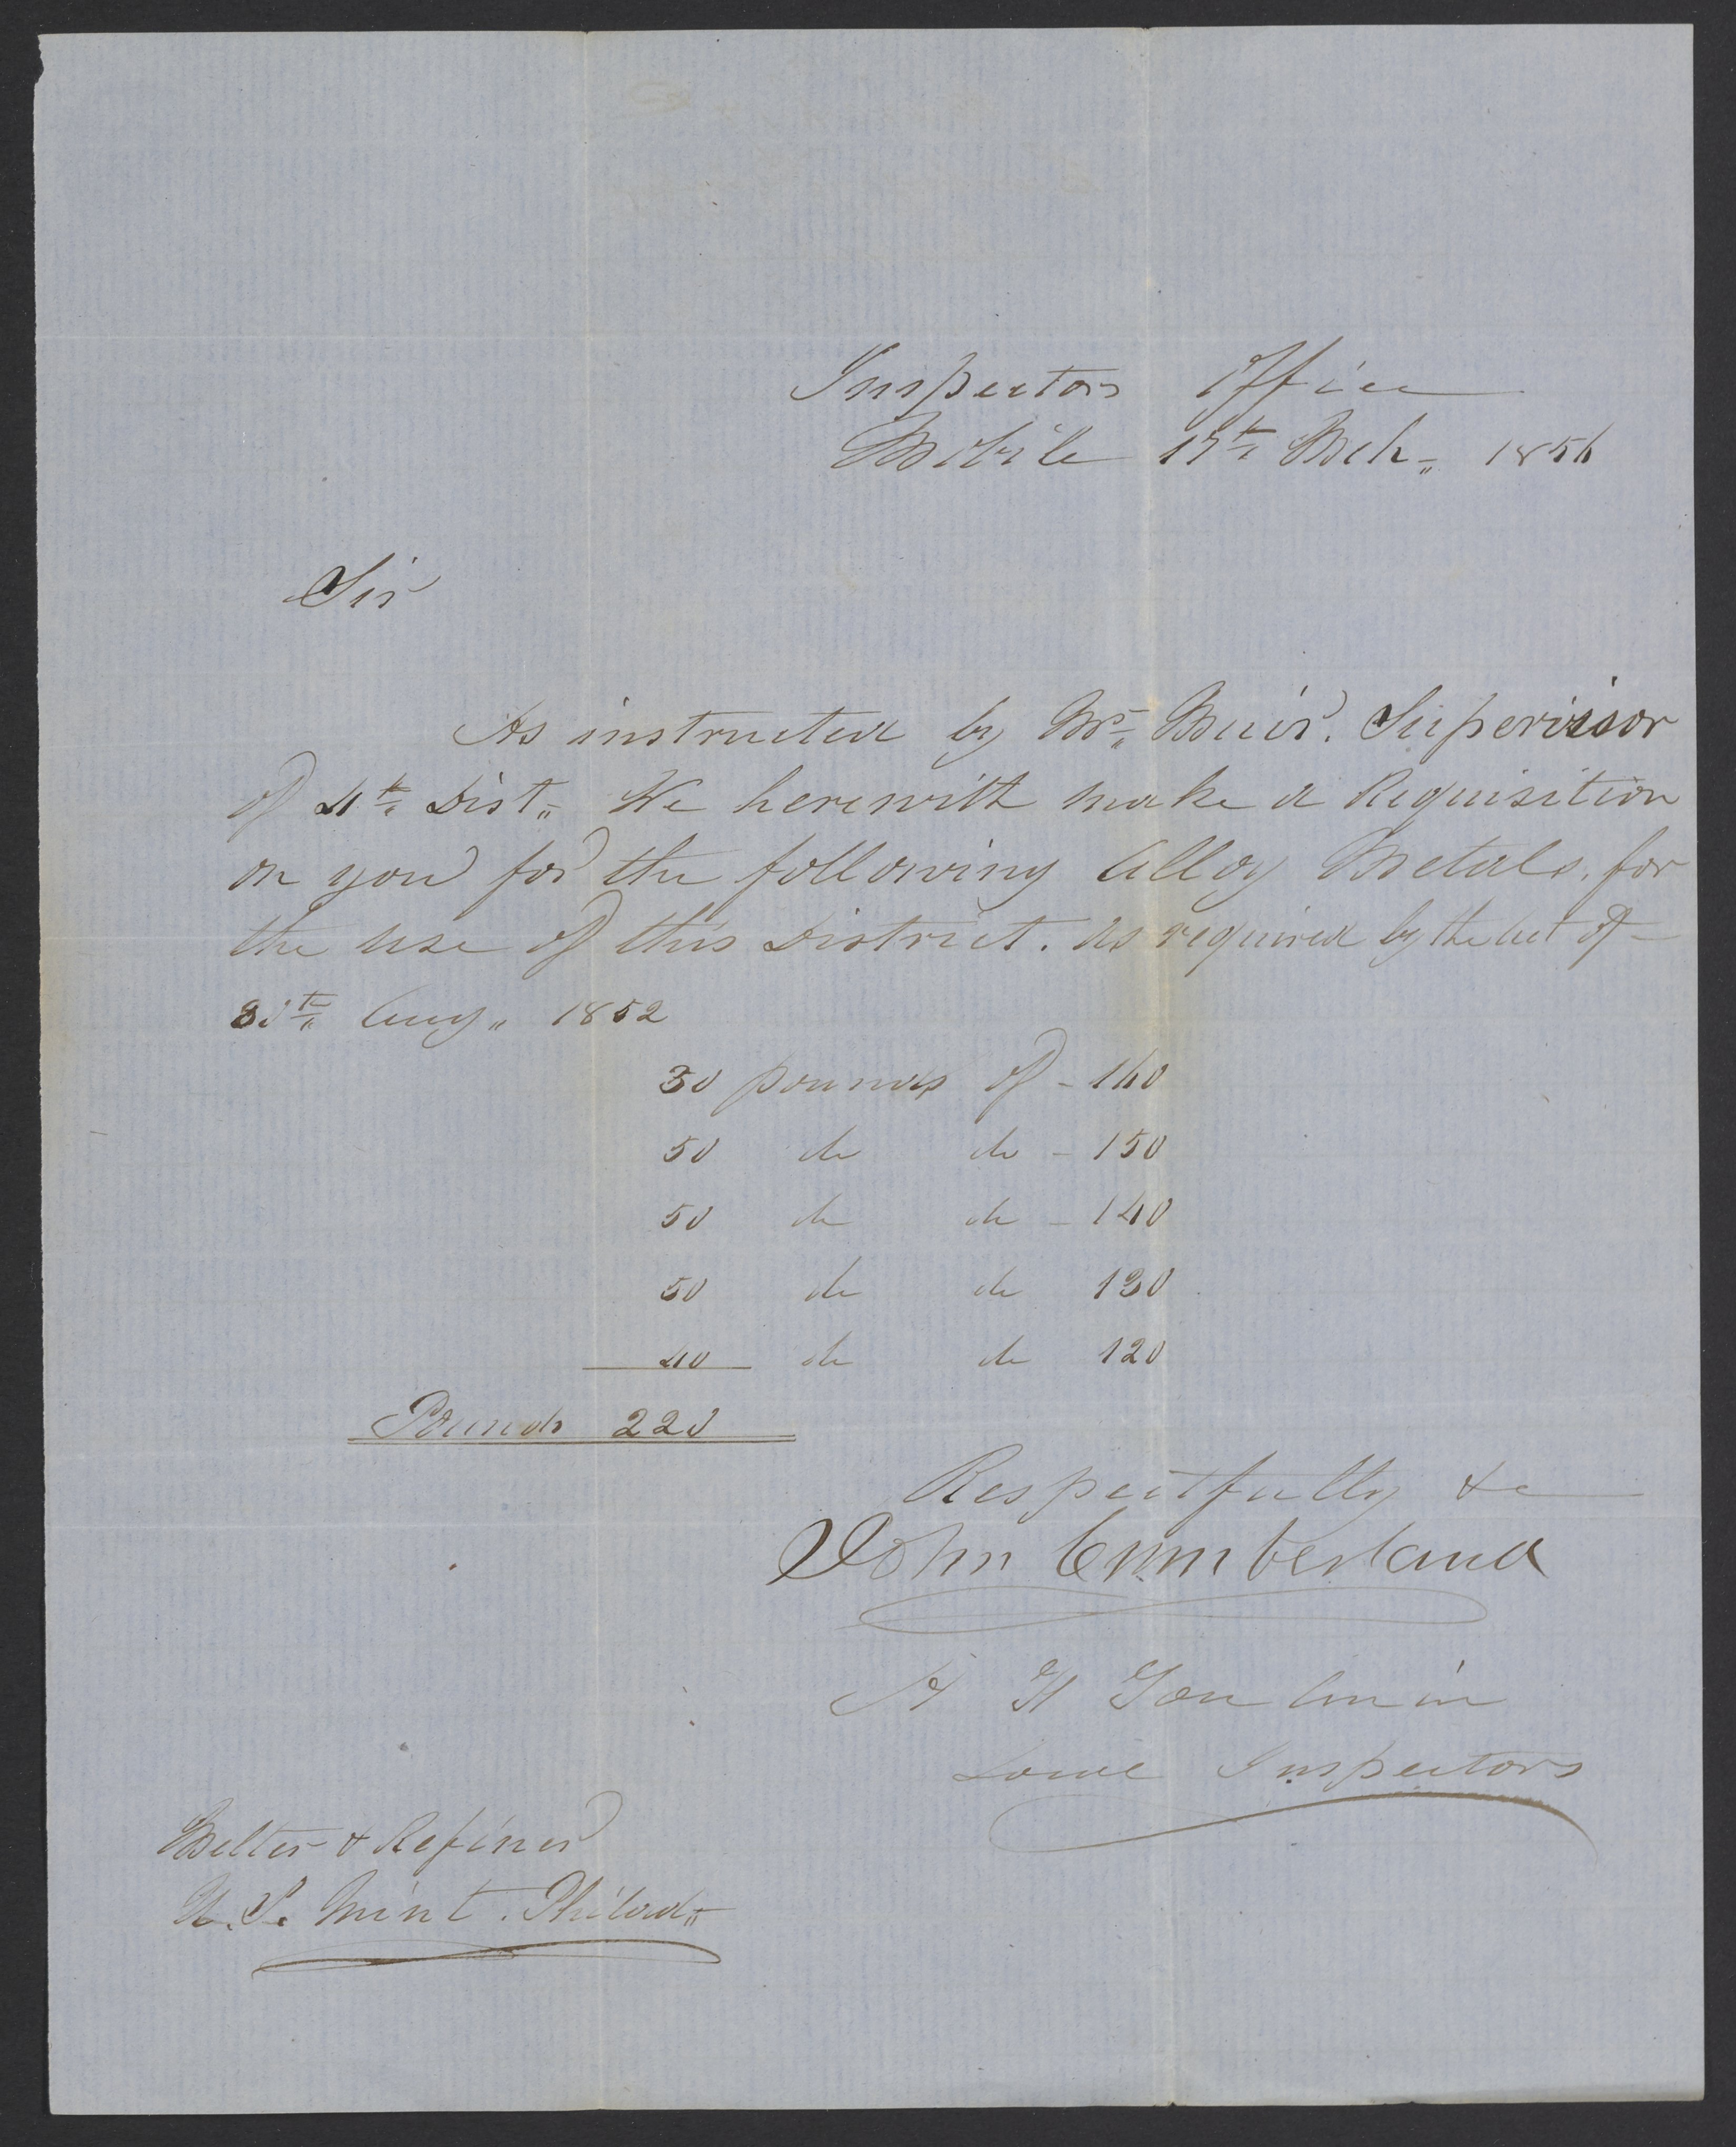 Inspectors Office
Mobile 17th Mch 1856
Sir
As instructed by Mr Muir. Supervisor
of 4th Dist We herewith make a Requisition
on you for the following Alloy Metals, for
the use of this District. as required by the act of
30th Aug 1852
30 pounds of - 160
50 do do - 150
50 do do - 140
50 do do 130
40 do do 120
Pounds 220
Respectfully &c
John Cumberland
H Toulmin
Local Inspectors
Melter & Refiner
U.S. Mint. Philad